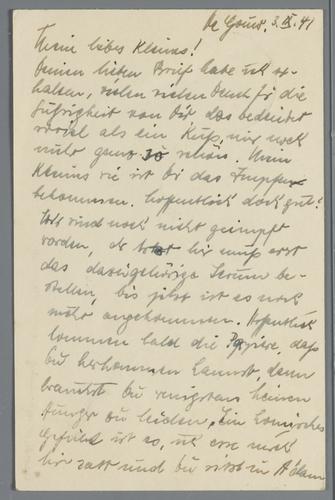 De Goude. 3. IX. 41
Mein liebes Kleines!
Deinen lieben Brief habe ich er-
halten, vielen vielen Dank für die
Süssigkeit von Dir, das bedeutet
soviel als ein Kuss, nur noch
nicht ganz so schön. Mein
Kleines wie ist Dir das Impfen
bekommen. hoffentlich doch gut?
Wir sind noch nicht geimpft
worden, der Arzt hier muss erst
das dazugehörige Serum be-
stellen, bis jetzt ist es noch
nicht angekommen. Hoffentlich
kommen bald die Papiere, dass
Du herkommen kannst, dann
brauchst Du wenigstens keinen
Hunger zu leiden. Ein komisches
Gefühl ist es, ich esse mich
hier satt und Du sitzt in A'dam